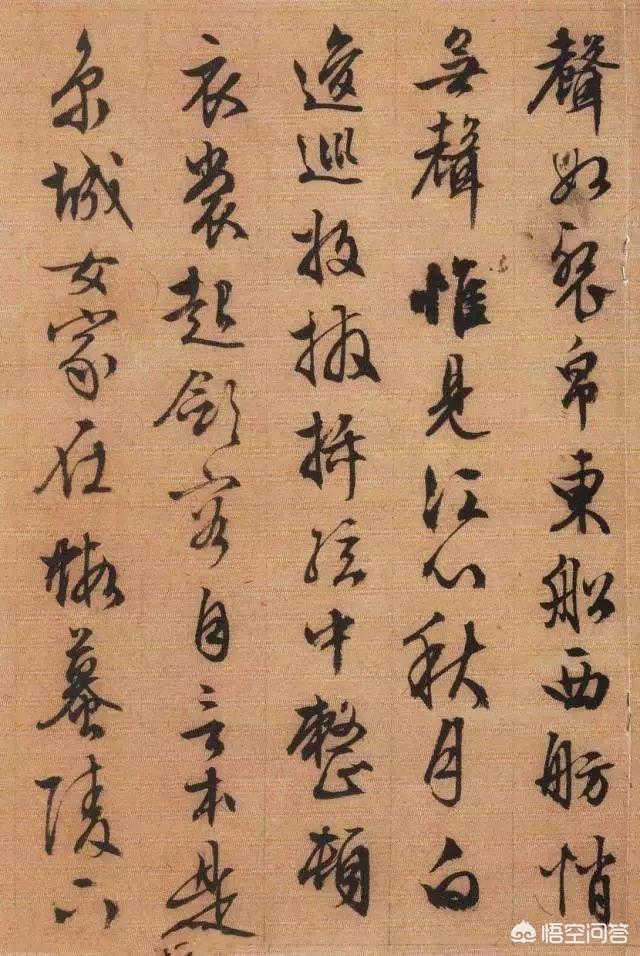 聲如裂帛東船西舫悄
無聲惟見江心秋月白
逡巡收撥插絃中整頓
衣裳起斂容自言本是
京城女家在蝦蟇陵下
悟空问答